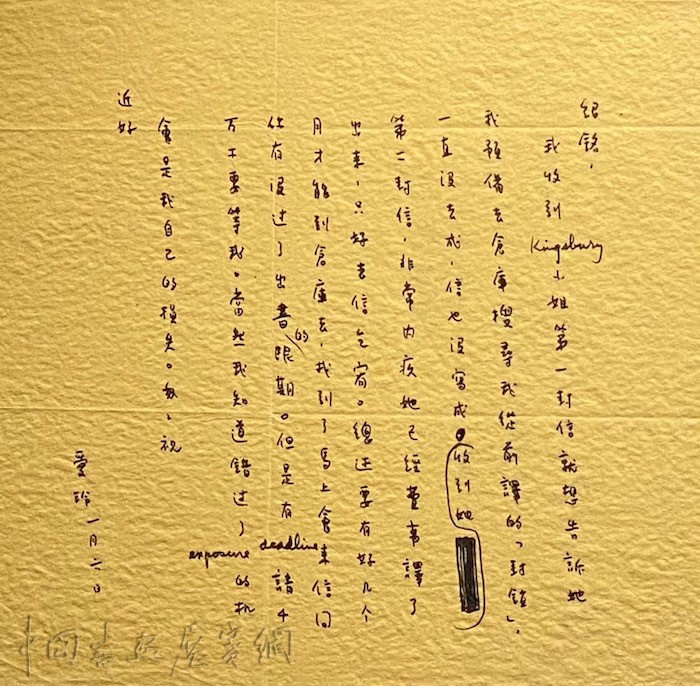 紹銘,
我收到Kingsbury小姐第一封信就想告訴她
我預備去倉庫搜尋我從前譯的「封鎖」,
一直沒去成,信也沒寫成。收到她
第二封信,非常内疚她已經費事譯了
出来,只好去信乞宥。總还要有好几个
月才能到倉庫去,找到了馬上會来信问
你有没过了出書的限期。但是有deadline請千
万不要等我。當然我知道錯过了exposure的机
會是我自己的損失。匆匆祝
近好
愛玲 一月六日